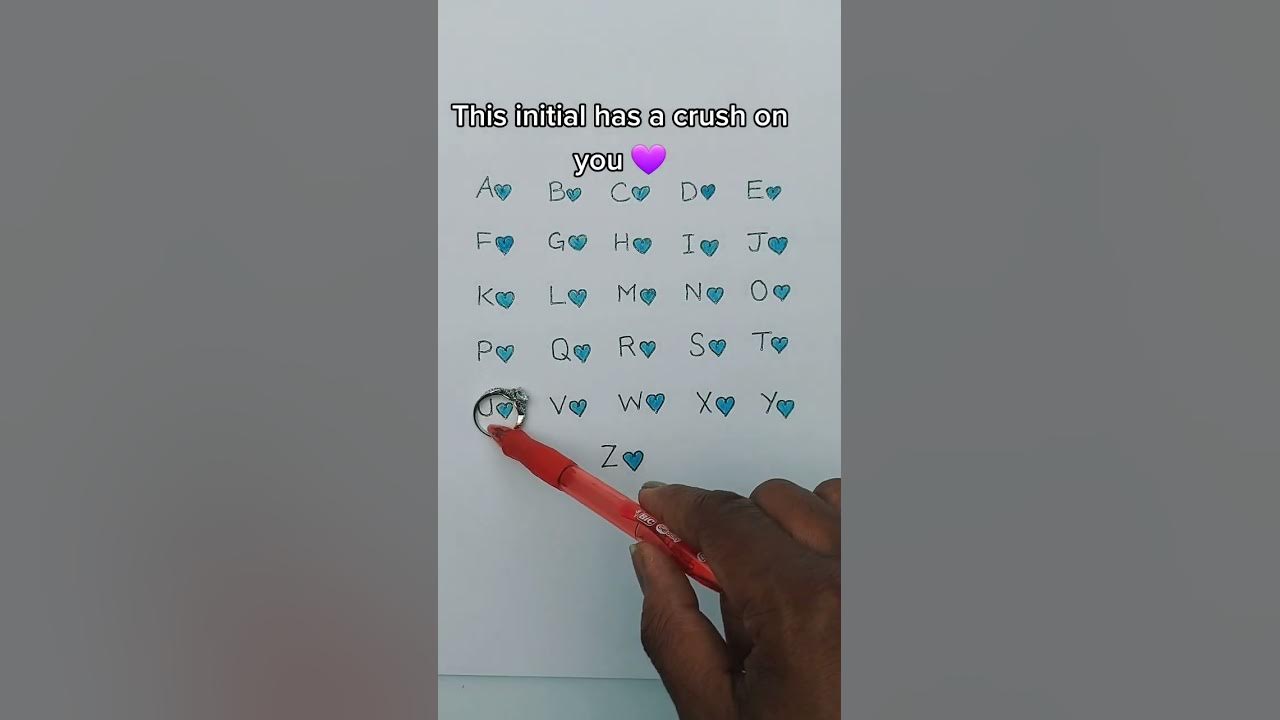 This initial has a crush on
you 💜
A💙 B💙 C💙 D💙 E💙
F💙 G💙 H💙 I💙 J💙
K💙 L💙 M💙 N💙 O💙
P💙 Q💙 R💙 S💙 T💙
U💙 V💙 W💙 X💙 Y💙
Z💙
BIC